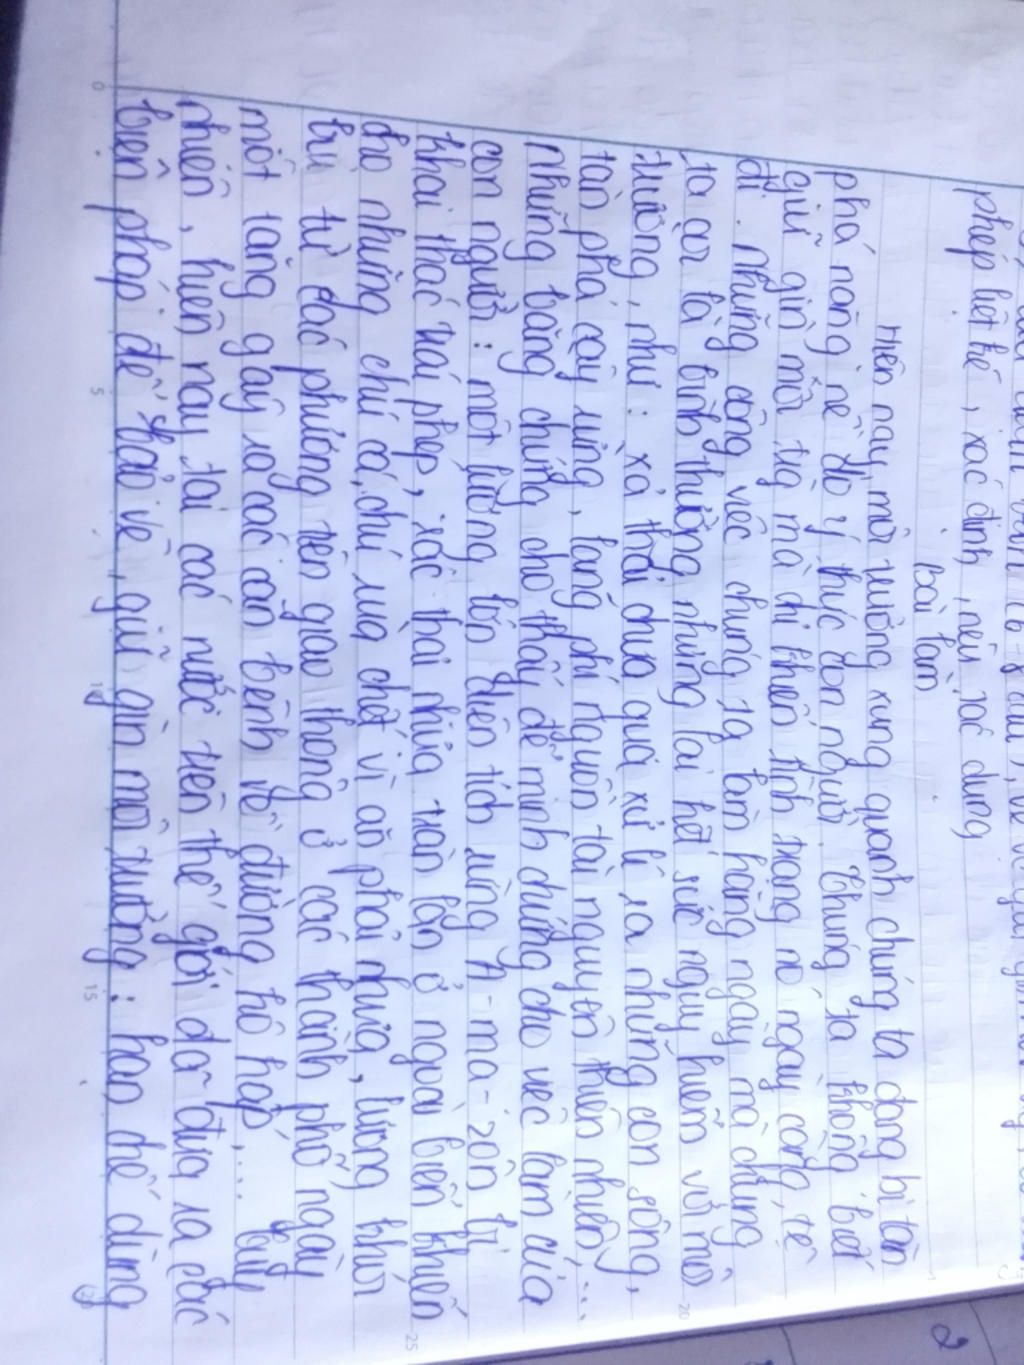 phép liệt kê, xác định, nêu tác dụng
Bài làm
Hiện nay, môi trường xung quanh chúng ta đang bị tàn
phá nặng nề do ý thức con người. Chúng ta không biết
giữ gìn môi trg mà chỉ khiến tình trạng nó ngày càng tệ
đi. Những công việc chúng ta làm hằng ngày mà chúng
ta coi là bình thường nhưng lại hết sức nguy hiểm với môi
trường, như: xả thải chưa qua xử lí ra những con sông,
tàn phá cây rừng, lãng phí nguồn tài nguyên thiên nhiên,...
Những bằng chứng cho thấy để minh chứng cho việc làm của
con người: một lượng lớn diện tích rừng A-ma-zôn bị
khai thác trái phép, xác thải nhựa tràn lan ở ngoài biển khiến
cho những chú cá, chú rùa chết vì ăn phải nhựa, lượng khói
bụi từ các phương tiện giao thông ở các thành phố ngày
một tăng gây ra các căn bệnh về đường hô hấp,... Tuy
nhiên, hiện nay tại các nước trên thế giới đã đưa ra các
biện pháp để bảo vệ, giữ gìn môi trường: hạn chế dùng